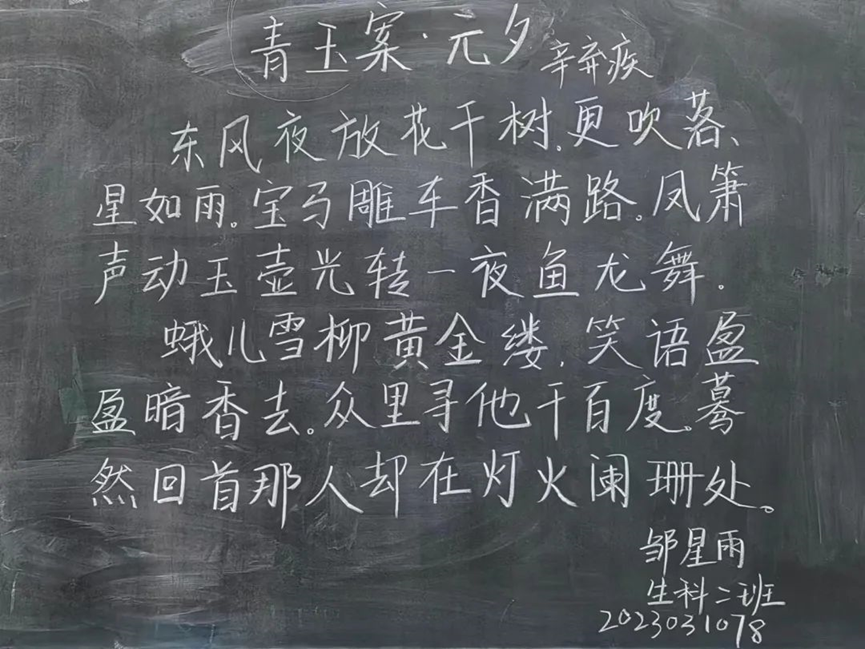 青玉案·元夕 辛弃疾
东风夜放花千树,更吹落、
星如雨。宝马雕车香满路。凤箫
声动玉壶光转一夜鱼龙舞。
蛾儿雪柳黄金缕,笑语盈
盈暗香去。众里寻他千百度。蓦
然回首那人却在灯火阑珊处。
邹星雨
生科二班
2023031078